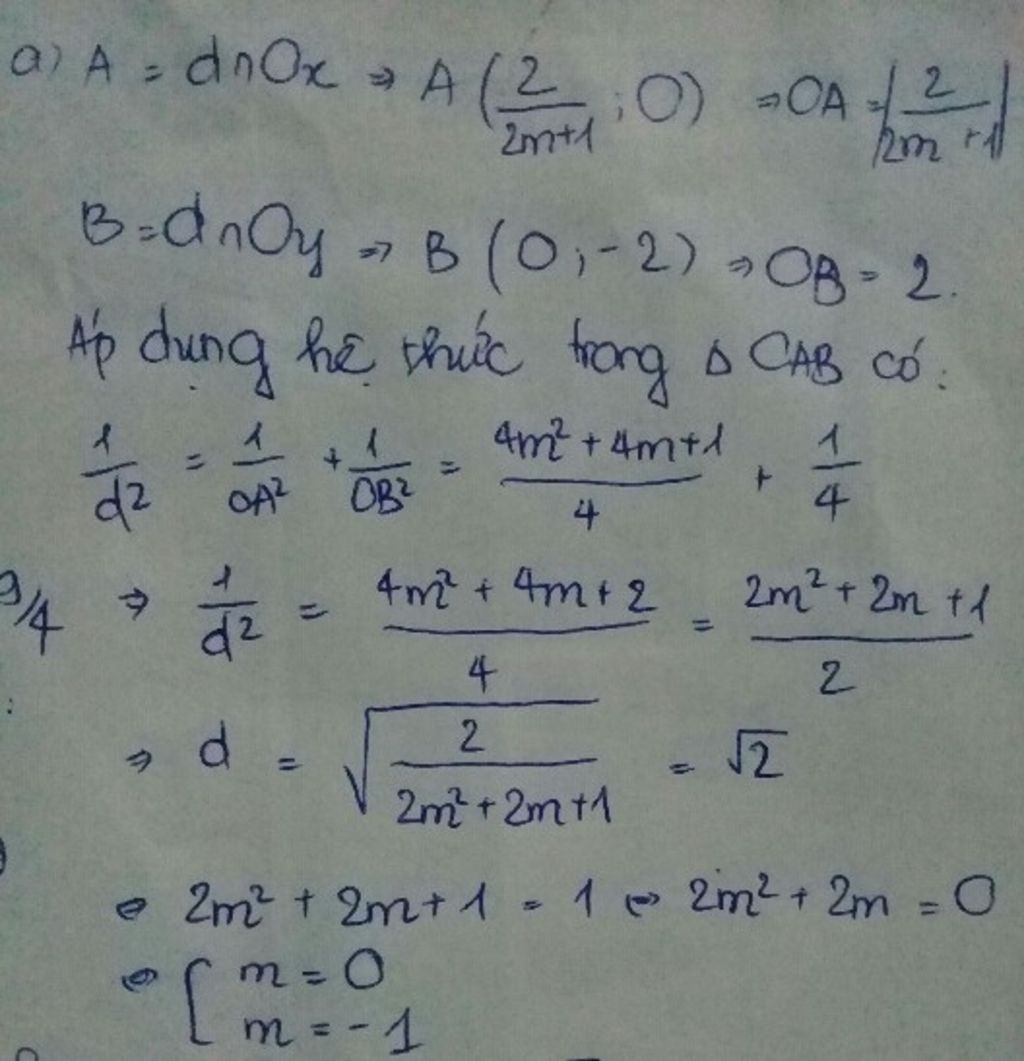 a) A = d∩Ox ⇒ A (2/(2m+1) ; 0) ⇒ OA = |2/(2m+1)|
B = d∩Oy ⇒ B (0 ; -2) ⇒ OB = 2.
Áp dụng hệ thức trong Δ OAB có:
1/d² = 1/OA² + 1/OB² = (4m² + 4m+1)/4 + 1/4
⇒ 1/d² = (4m² + 4m + 2)/4 = (2m² + 2m + 1)/2
⇒ d = √(2/(2m² + 2m + 1)) = √2
⇔ 2m² + 2m + 1 = 1 ⇔ 2m² + 2m = 0
⇔ [ m = 0
m = -1